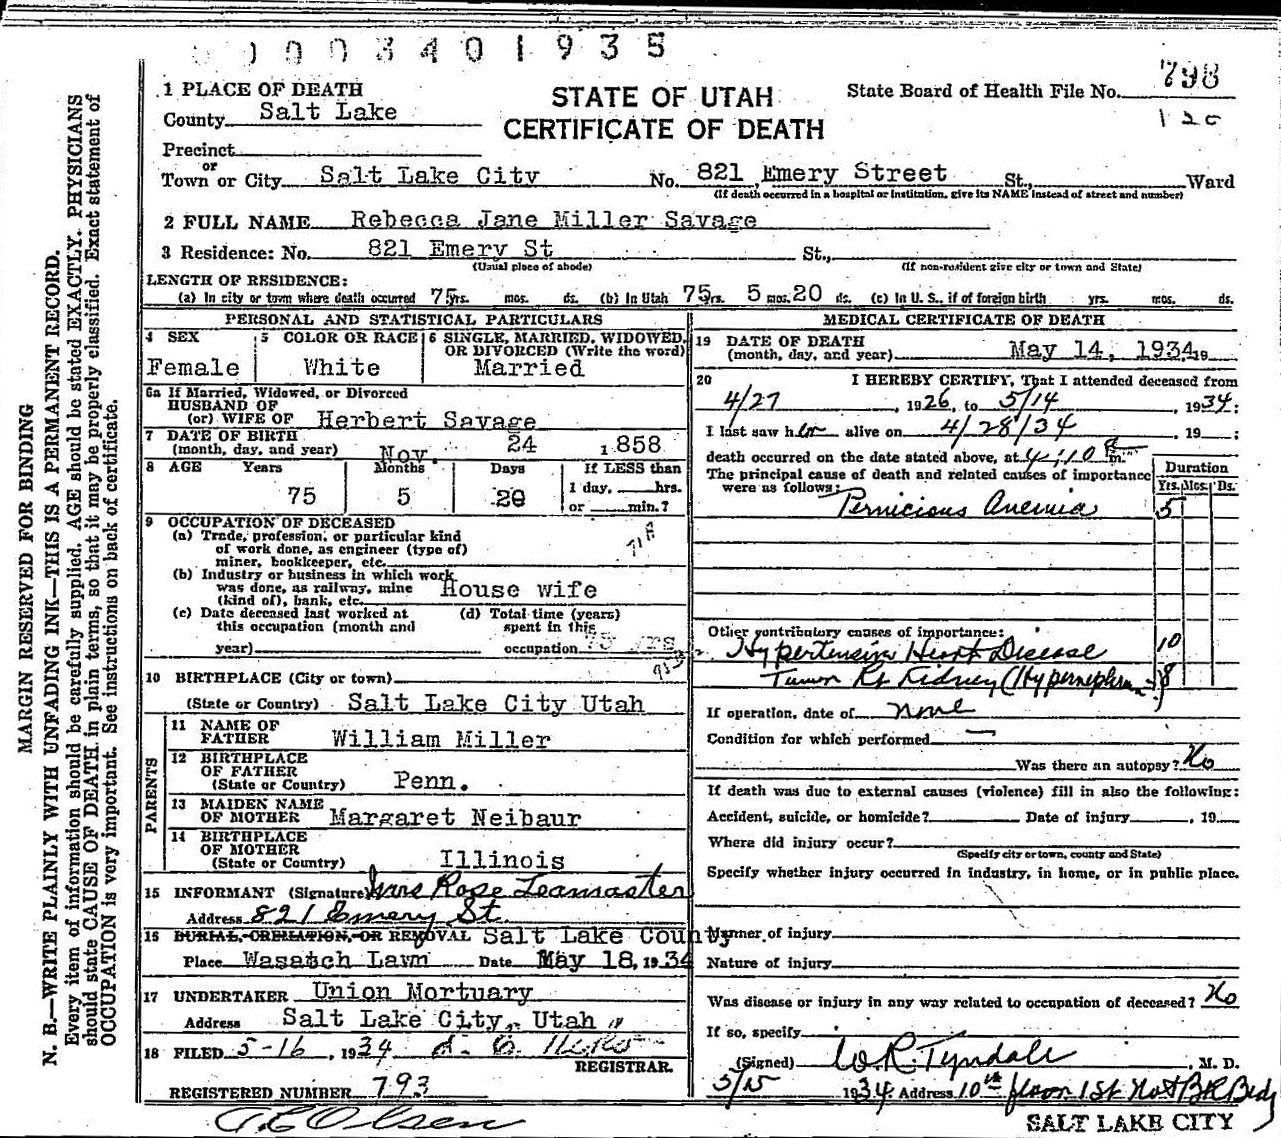 0003401935
1 PLACE OF DEATH
STATE OF UTAH
CERTIFICATE OF DEATH
State Board of Health File No. 798
120
County Salt Lake
Precinct
or
Town or City Salt Lake City No. 821 Emery Street St., Ward
(If death occurred in a hospital or institution, give its NAME instead of street and number)
2 FULL NAME Rebecca Jane Miller Savage
3 Residence: No. 821 Emery St St.,
(Usual place of abode) (If non-resident give city or town and State)
LENGTH OF RESIDENCE:
(a) In city or town where death occurred 75 yrs. mos. ds. (b) In Utah 75 yrs. 5 mos. 20 ds. (c) In U. S., if of foreign birth yrs. mos. ds.
PERSONAL AND STATISTICAL PARTICULARS
4 SEX Female
5 COLOR OR RACE White
6 SINGLE, MARRIED, WIDOWED, OR DIVORCED (Write the word) Married
6a If Married, Widowed, or Divorced
HUSBAND OF
(or) WIFE OF Herbert Savage
7 DATE OF BIRTH
(month, day, and year) Nov. 24 1858
8 AGE Years Months Days If LESS than
75 5 20 1 day, hrs.
or min.?
9 OCCUPATION OF DECEASED
(a) Trade, profession, or particular kind
of work done, as engineer (type of)
miner, bookkeeper, etc.
(b) Industry or business in which work
was done, as railway, mine
(kind of), bank, etc. House wife
(c) Date deceased last worked at
this occupation (month and
year)
(d) Total time (years)
spent in this
occupation 75 yrs
10 BIRTHPLACE (City or town)
(State or Country) Salt Lake City Utah
PARENTS
11 NAME OF
FATHER William Miller
12 BIRTHPLACE
OF FATHER
(State or Country) Penn.
13 MAIDEN NAME
OF MOTHER Margaret Neibaur
14 BIRTHPLACE
OF MOTHER
(State or Country) Illinois
15 INFORMANT (Signature) Rose Leamaster
Address 821 Emery St.
16 BURIAL, CREMATION, OR REMOVAL Salt Lake County
Place Wasatch Lawn Date May 18, 1934
17 UNDERTAKER Union Mortuary
Address Salt Lake City, Utah
18 FILED 5-16, 1934
REGISTRAR.
REGISTERED NUMBER 793
MEDICAL CERTIFICATE OF DEATH
19 DATE OF DEATH
(month, day, and year) May 14, 1934 19
20 I HEREBY CERTIFY, That I attended deceased from
4/27, 1926, to 5/14, 1934;
I last saw her alive on 4/28/34, 19 ;
death occurred on the date stated above, at 4:10 P m.
The principal cause of death and related causes of importance
were as follows:
Duration
Yrs. Mos. Ds.
Pernicious Anemia 5
Other contributory causes of importance:
Hypertensive Heart Disease 10
Tumor Rt Kidney (Hypernephroma) 8
If operation, date of none
Condition for which performed —
Was there an autopsy? No
If death was due to external causes (violence) fill in also the following:
Accident, suicide, or homicide? Date of injury , 19
Where did injury occur?
(Specify city or town, county and State)
Specify whether injury occurred in industry, in home, or in public place.
Manner of injury
Nature of injury
Was disease or injury in any way related to occupation of deceased? No
If so, specify
(Signed) W. R. Tyndale, M. D.
5/15 1934 Address 10th floor 1st Nat Bk Bldg
SALT LAKE CITY
Olsen
MARGIN RESERVED FOR BINDING
N. B.—WRITE PLAINLY WITH UNFADING INK—THIS IS A PERMANENT RECORD.
Every item of information should be carefully supplied. AGE should be stated EXACTLY. PHYSICIANS
should state CAUSE OF DEATH in plain terms, so that it may be properly classified. Exact statement of
OCCUPATION is very important. See instructions on back of certificate.